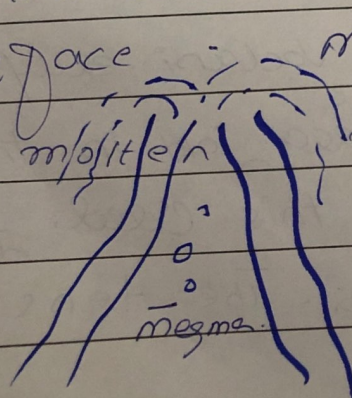 gace
molten
megma.